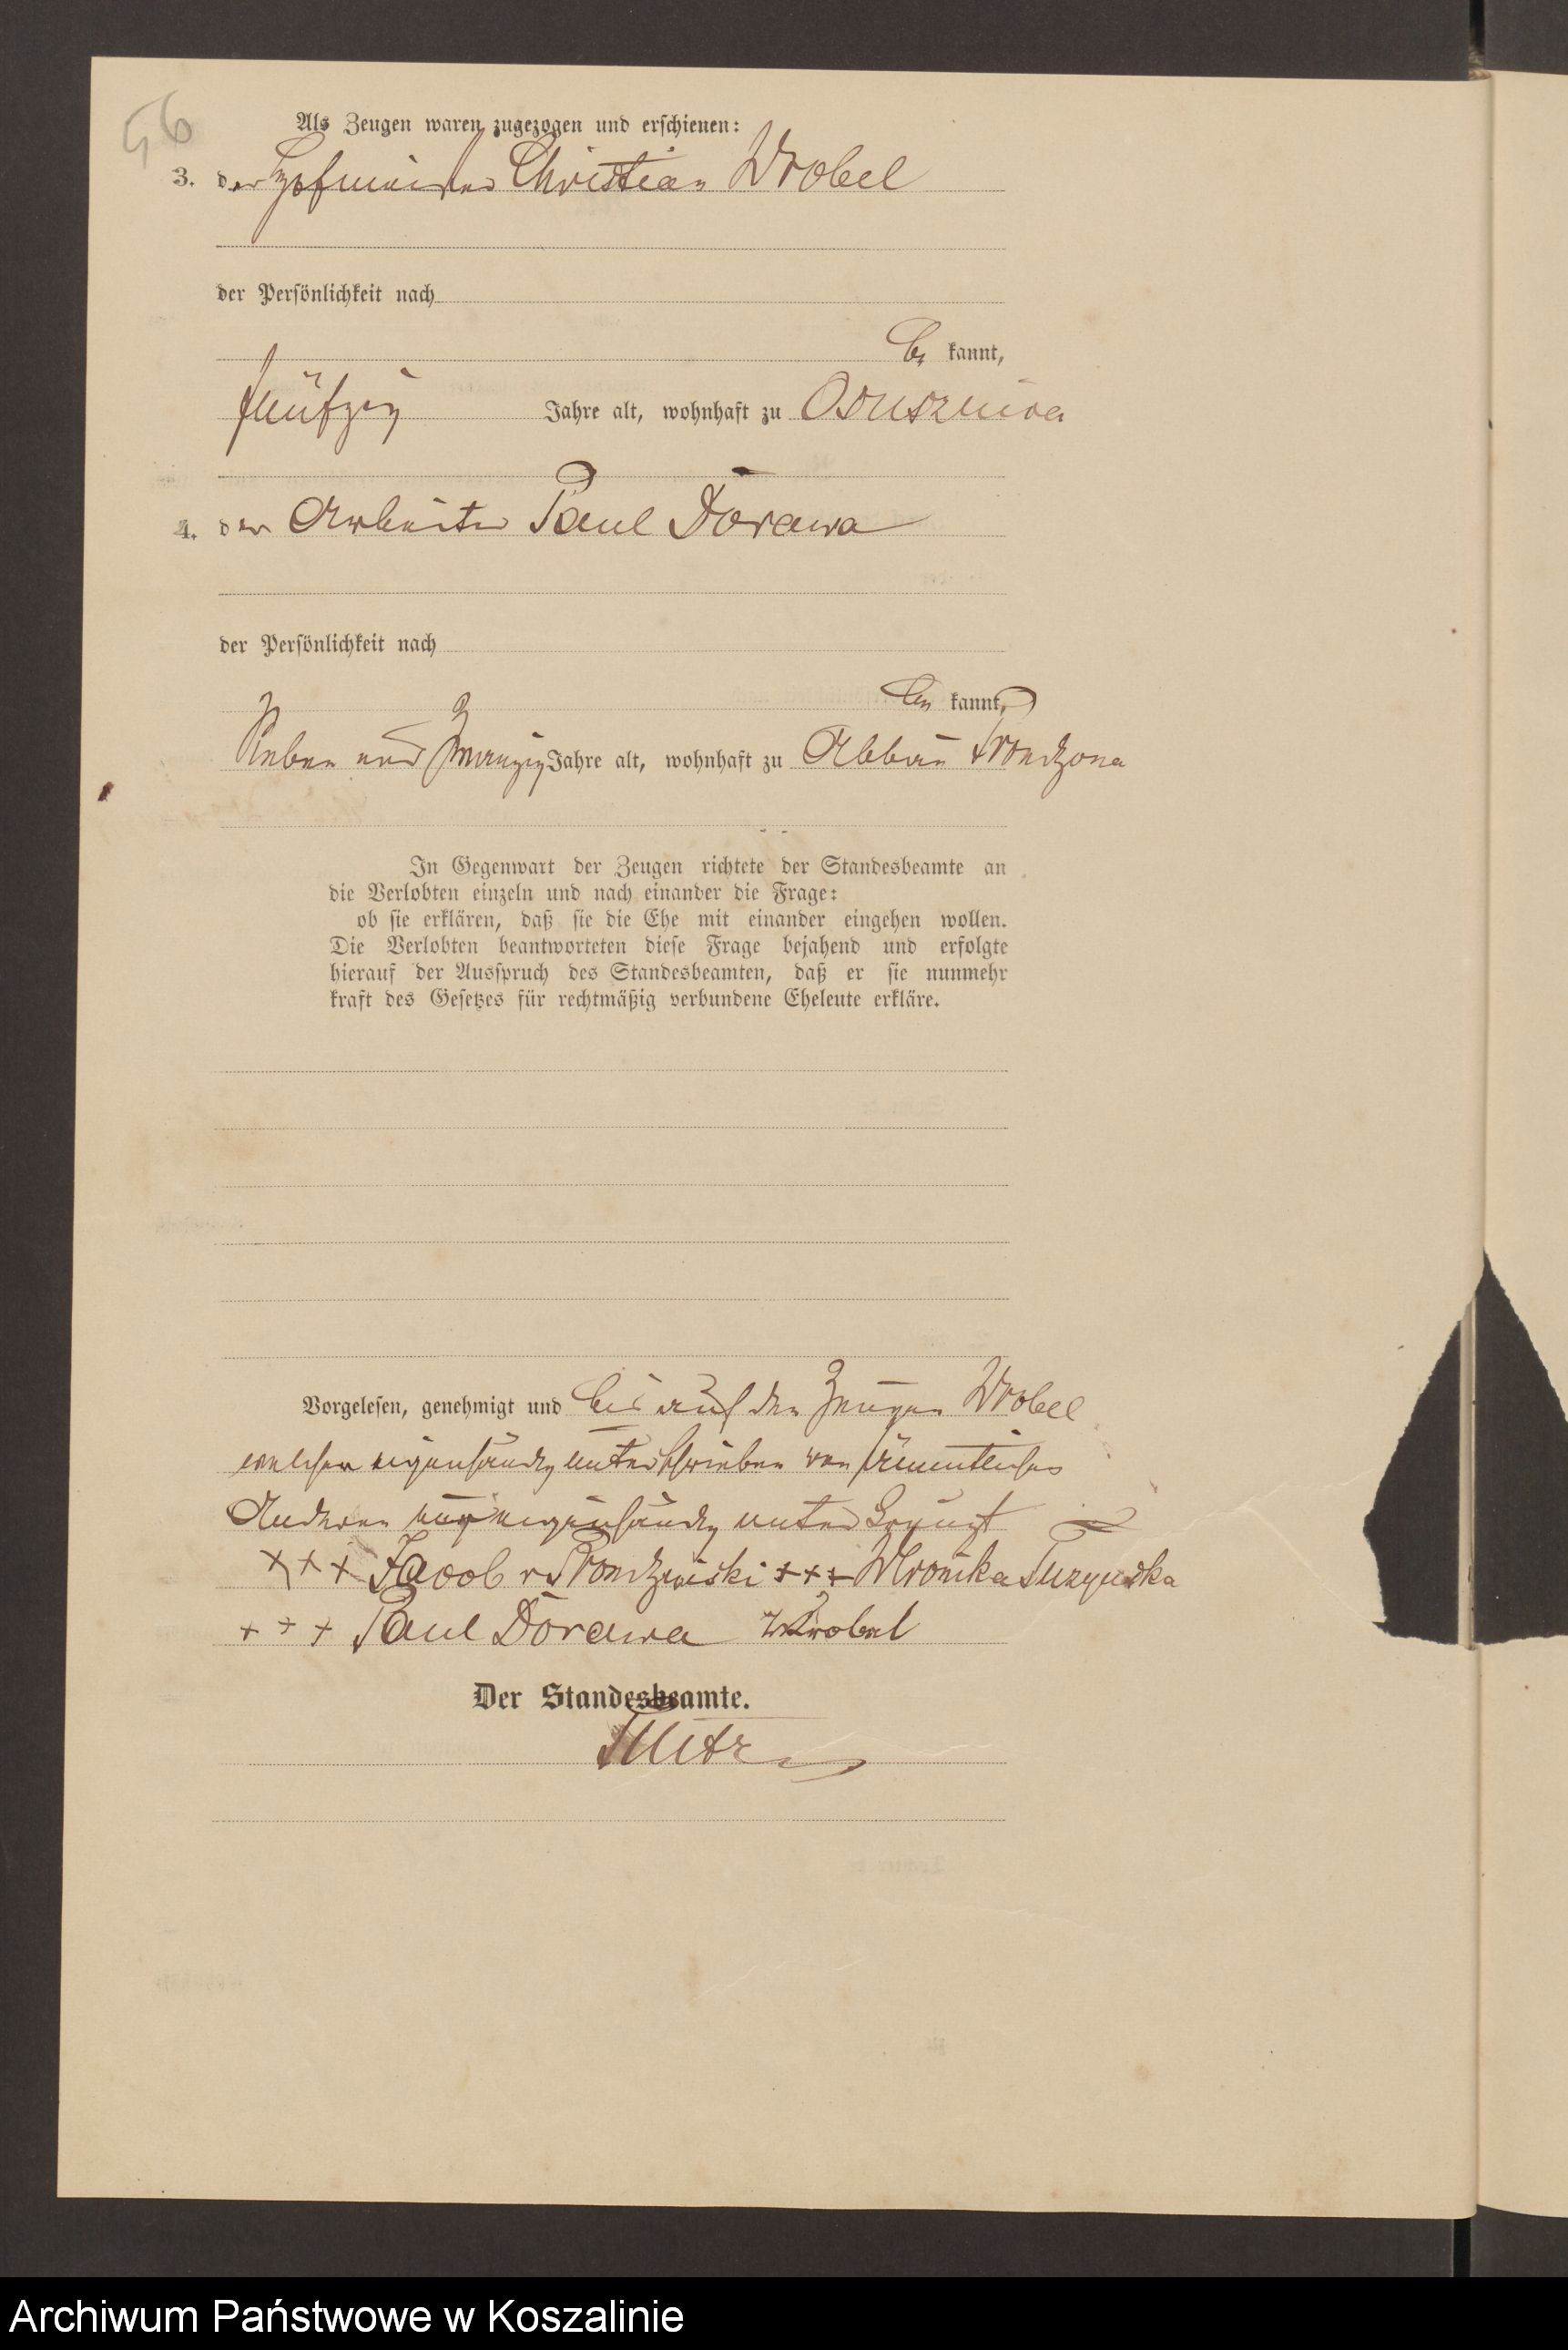 56
Als Zeugen waren zugezogen und erschienen:
3. der Hofmeister Christian Wrobel
der Persönlichkeit nach
be kannt,
fünfzig Jahre alt, wohnhaft zu Ossusznica
4. der Arbeiter Paul Dorawa
der Persönlichkeit nach
be kannt,
Sieben und zwanzig Jahre alt, wohnhaft zu Abbau Prondzona
In Gegenwart der Zeugen richtete der Standesbeamte an
die Verlobten einzeln und nach einander die Frage:
ob sie erklären, daß sie die Ehe mit einander eingehen wollen.
Die Verlobten beantworteten diese Frage bejahend und erfolgte
hierauf der Ausspruch des Standesbeamten, daß er sie nunmehr
kraft des Gesetzes für rechtmäßig verbundene Eheleute erkläre.
Vorgelesen, genehmigt und bis auf den Zeugen Wrobel
welcher eigenhändig unterschrieben von sämmtlichen
Anderen eigenhändig unterkreuzt
+++ Jacob v Prondzinski +++ Weronika
+++ Paul Dorawa Wrobel
Der Standesbeamte.
Archiwum Państwowe w Koszalinie